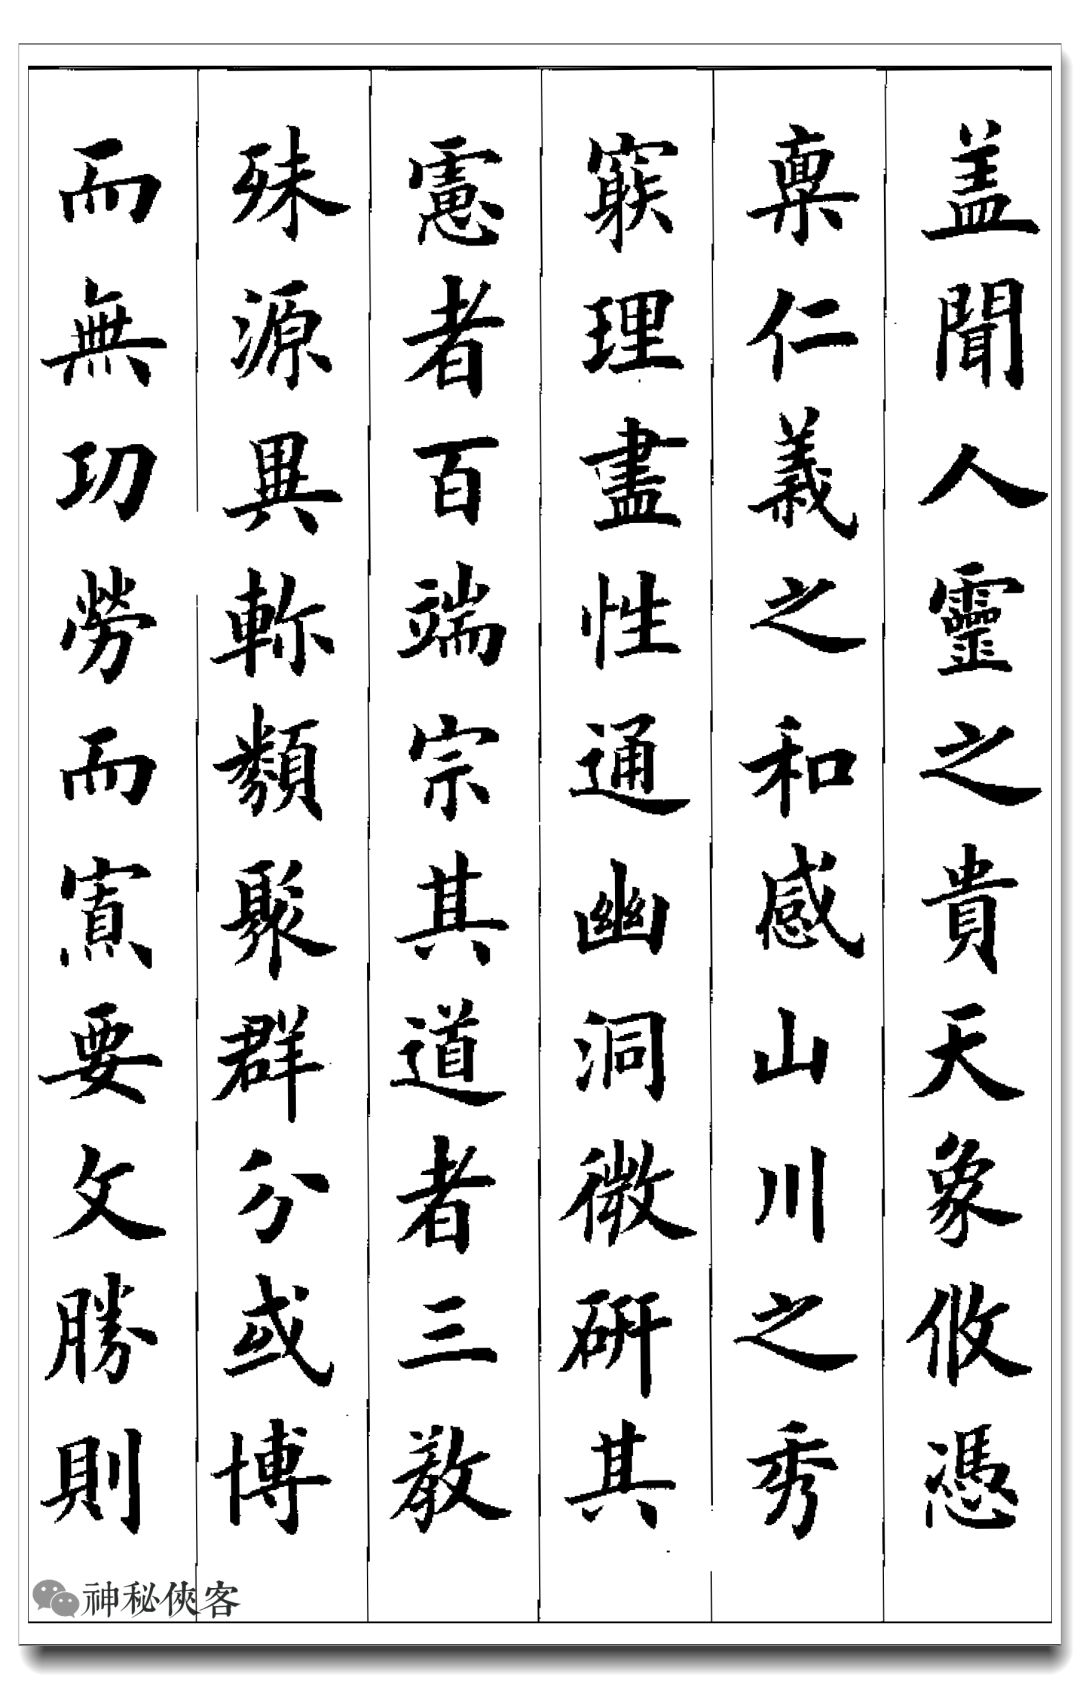 盖聞人靈之貴天象攸憑
禀仁義之和感山川之秀
窮理盡性通幽洞微硏其
慮者百端宗其道者三教
殊源異軫類聚群分或博
而無功勞而寡要文勝則
神秘俠客